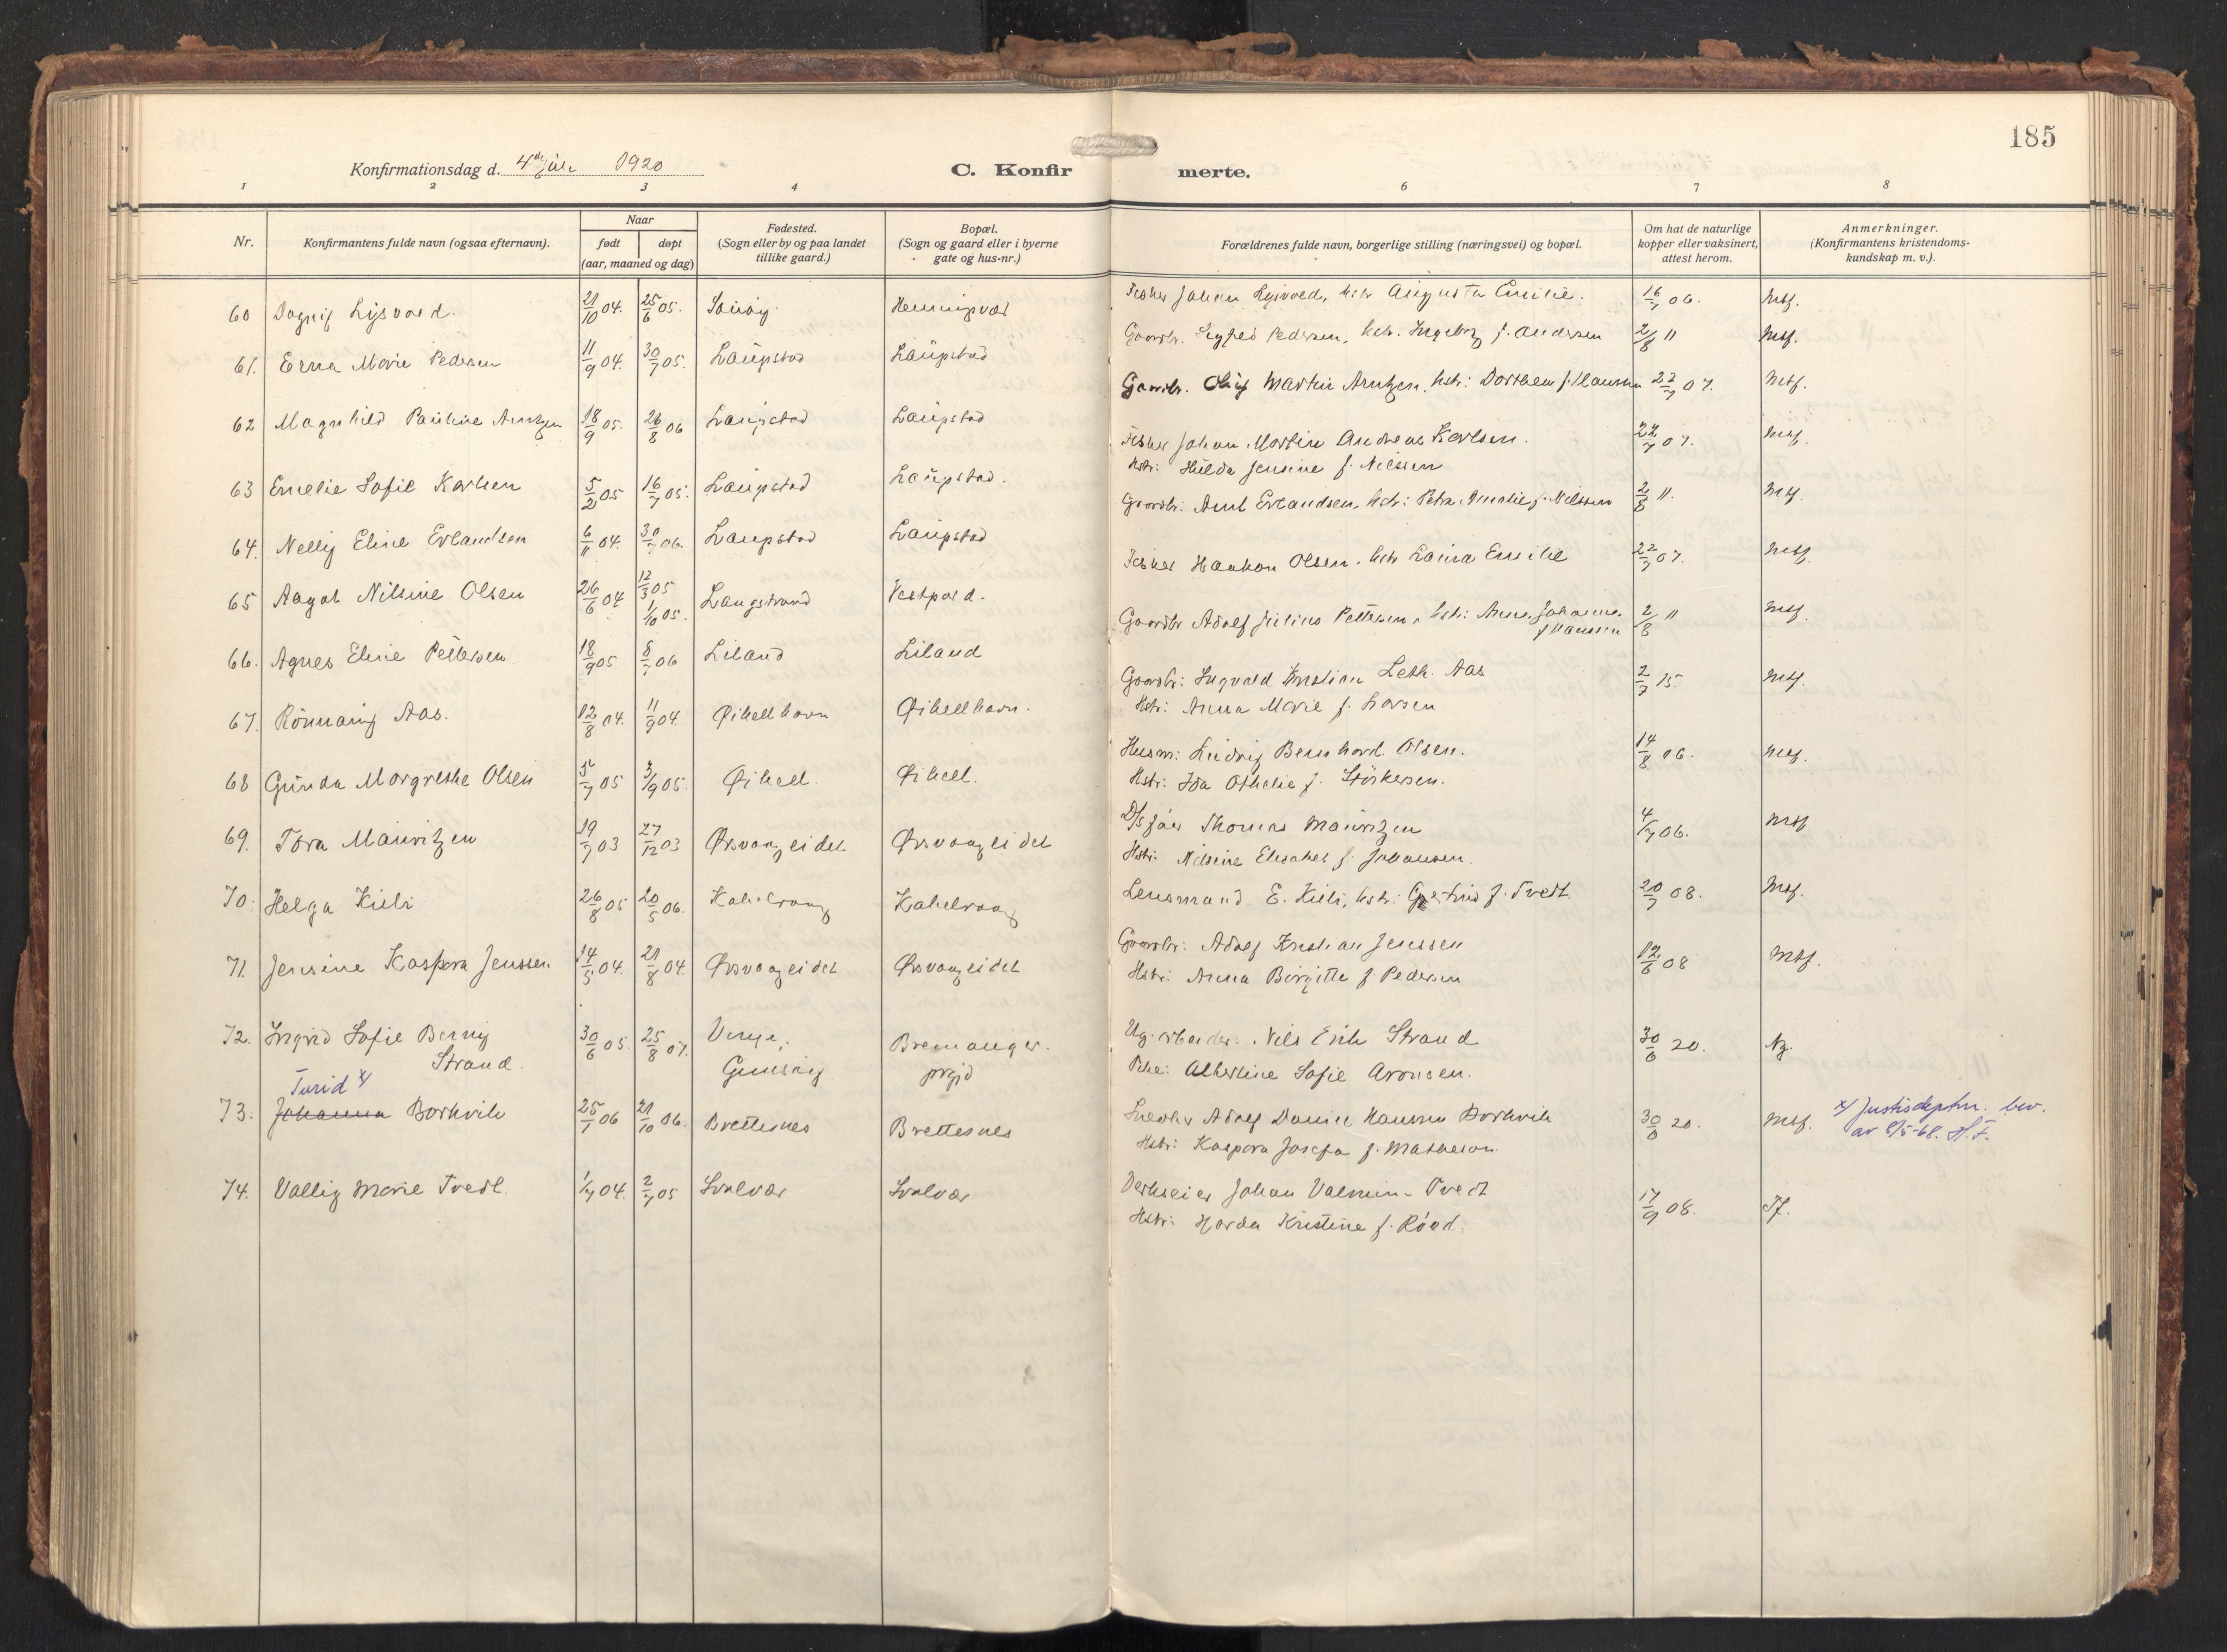 185
Konfirmationsdag d. 4de juli 1920
C. Konfirmerte.
1 2 3 4 6 7 8
Nr. Konfirmantens fulde navn (ogsaa efternavn). Naar født døpt (aar, maaned og dag) Fødested. (Sogn eller by og paa landet tillike gaard.) Bopæl. (Sogn og gaard eller i byerne gate og hus-nr.) Forældrenes fulde navn, borgerlige stilling (næringsvei) og bopæl. Om hat de naturlige kopper eller vaksinert, attest herom. Anmerkninger. (Konfirmantens kristendomskundskap m. v.).
60 Dagny Lysvold. 21/10 04. 25/6 05. Henningvær Fisker Johan Lysvold, hstr Augusta Emilie. 16/7 06. Mtf.
61. Erna Marie Pedersen 11/9 04. 30/7 05. Laupstad Laupstad Gaardbr. Pedersen, hstr. Ingeborg f. Andersen 2/8 11 Mtf.
62 Magnhild Pauline Arntzen 18/9 05. 26/8 06 Laupstad Laupstad Gaardbr. Oluf Martin Arntzen, hstr: Dorthea f. Hansen 22/7 07. Mtf.
63 Emelie Sofie Karlsen 5/2 05 16/7 05. Laupstad Laupstad. Fisker Johan Martin Andreas Karlsen. 22/7 07. Mtf.
Hstr: Hulda Jensine f. Nilssen
64. Nelly Eline Erlandsen 6/11 04. 30/7 06. Laupstad Laupstad Gaardbr: Arnt Erlandsen, hstr: Petra Amalie f. Nilssen 2/8 11. Mtf.
65 Aagot Nilsine Olsen 26/6 04 12/3 05 1/10 05. Langstrand Vestpold. Fisker Haakon Olsen. hstr Laura Emilie 22/7 07. Mtf.
66. Agnes Eline Pettersen 18/9 05 8/7 06 Liland Liland Gaardbr Adolf Julius Pettersen, hstr: Anne Johanna f Hanssen 2/8 11 Mtf.
67. Rönnaug Aas. 12/8 04. 11/9 04. Øihellhavn Øihellhavn. Gaardbr: Ingvald Kristian Leth. Aas 2/7 15. Mtf.
Hstr: Anna Marie f. Larsen
68 Gunda Margrethe Olsen 5/7 05 3/9 05. Øihell. Øihell. Husm: Ludvig Bernhard Olsen. 14/8 06. Mtf.
Hstr: Ida Othelie f. Störkersen.
69. Tora Mauritzen 19/7 03 27/12 03 Ørsvaageidet Ørsvaageidet Thomas Mauritzen 4/7 06. Mtf
Hstr: Nilsine Elisabet f. Johansen.
70. Helga Kiil 26/8 05 20/5 06. Kabelvaag Kabelvaag Lensmand E. Kiil, hstr: Gjertrud f. Tvedt. 20/7 08. Mtf.
71. Jensine Kaspara Jenssen 14/5 04. 21/8 04. Ørsvaageidet Ørsvaageidet Gaardbr: Adolf Kristian Jenssen 12/6 08 Mtf.
Hstr: Anna Birgitte f Pedersen
72. Ingrid Sofie Berny Strand. 30/6 05. 25/8 07. Gimsøy Bremanger prgjd Ug. arbeider: Nils Erik Strand 30/6 20. Ng.
Pike: Albertine Sofie Aronsen.
Turid x/
73. Johanna Borkvik 25/1 06 21/10 06. Brettesnes Brettesnes Adolf Daniel Hansen Borkvik 30/6 20. Mtf. x/ Justisdeptm. bev.
av 8/5-68. H.F.
Hstr: Kaspara Josefa f. Mathesen
74. Vally Marie Tvedt. 1/7 04. 2/7 05 Svolvær Svolvær Verkseier Johan Tvedt 17/9 08. Tf.
Hstr: Harda Kristine f. Röed.